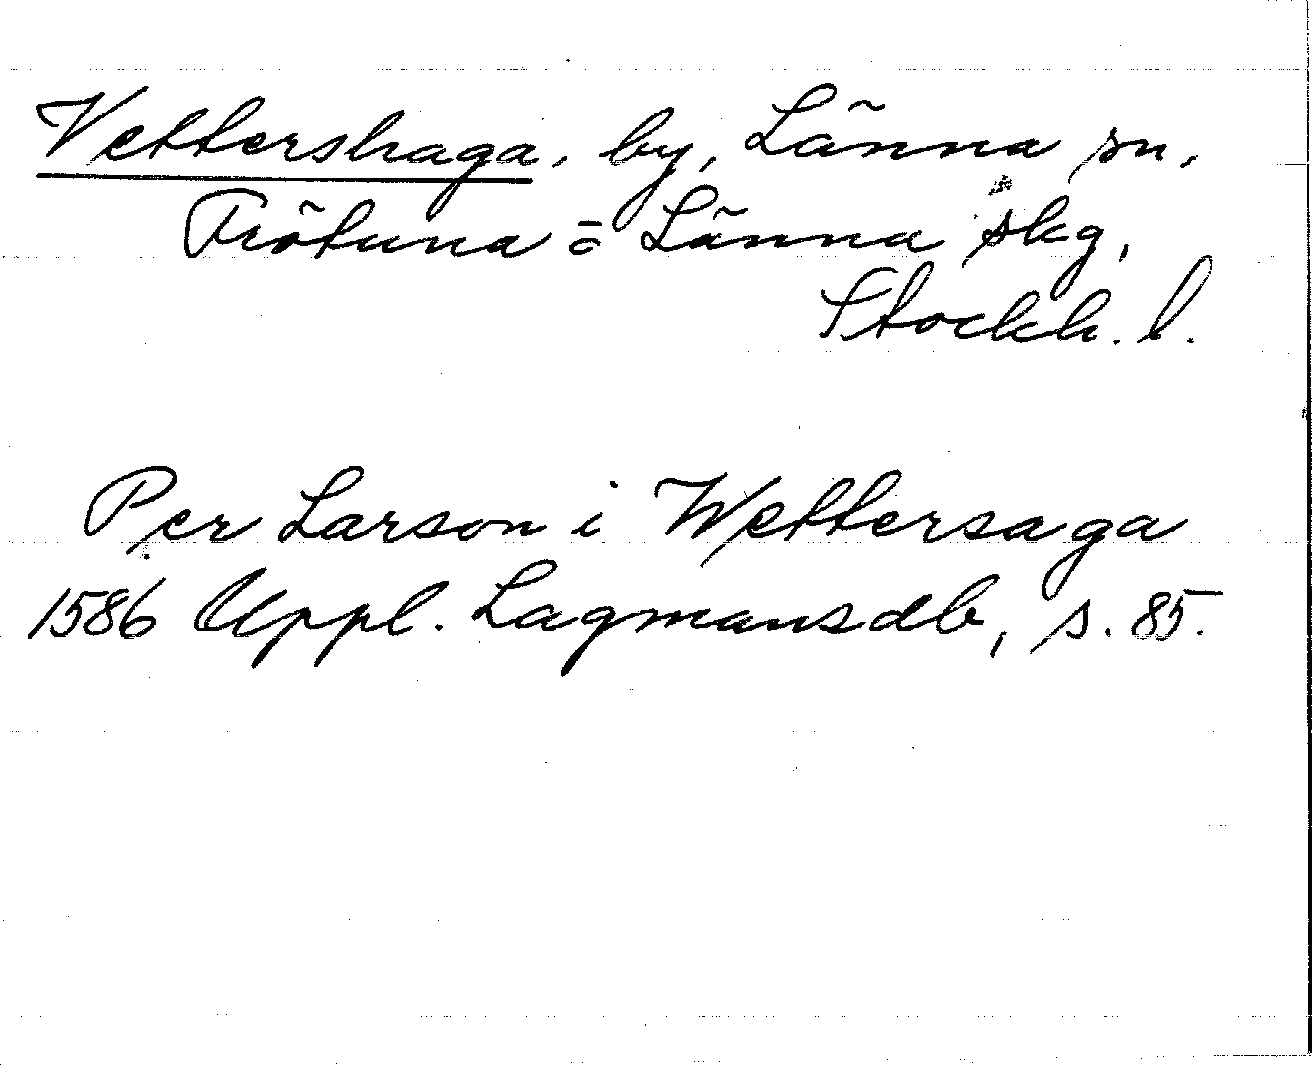 Vettershaga, by, Länna sn,
Frötuna o Länna skg,
Stockh. l.
Per Larson i Wettersaga
1586 Uppl. Lagmansdb, s. 85.